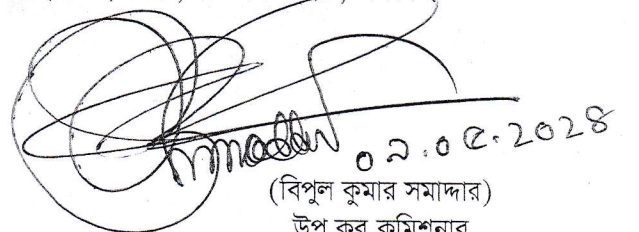 ০৯.০৫.২০২৪
(বিপুল কুমার সমাদ্দার)
উপ কর কমিশনার